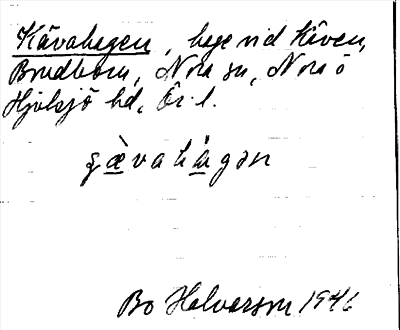 Kävahagen, hage vid Käven,
Bredboru, Nora sn, Nora o
Hjulsjö hd, Ör. l.
çæ̀vahàgən
Bo Halvarson 1946